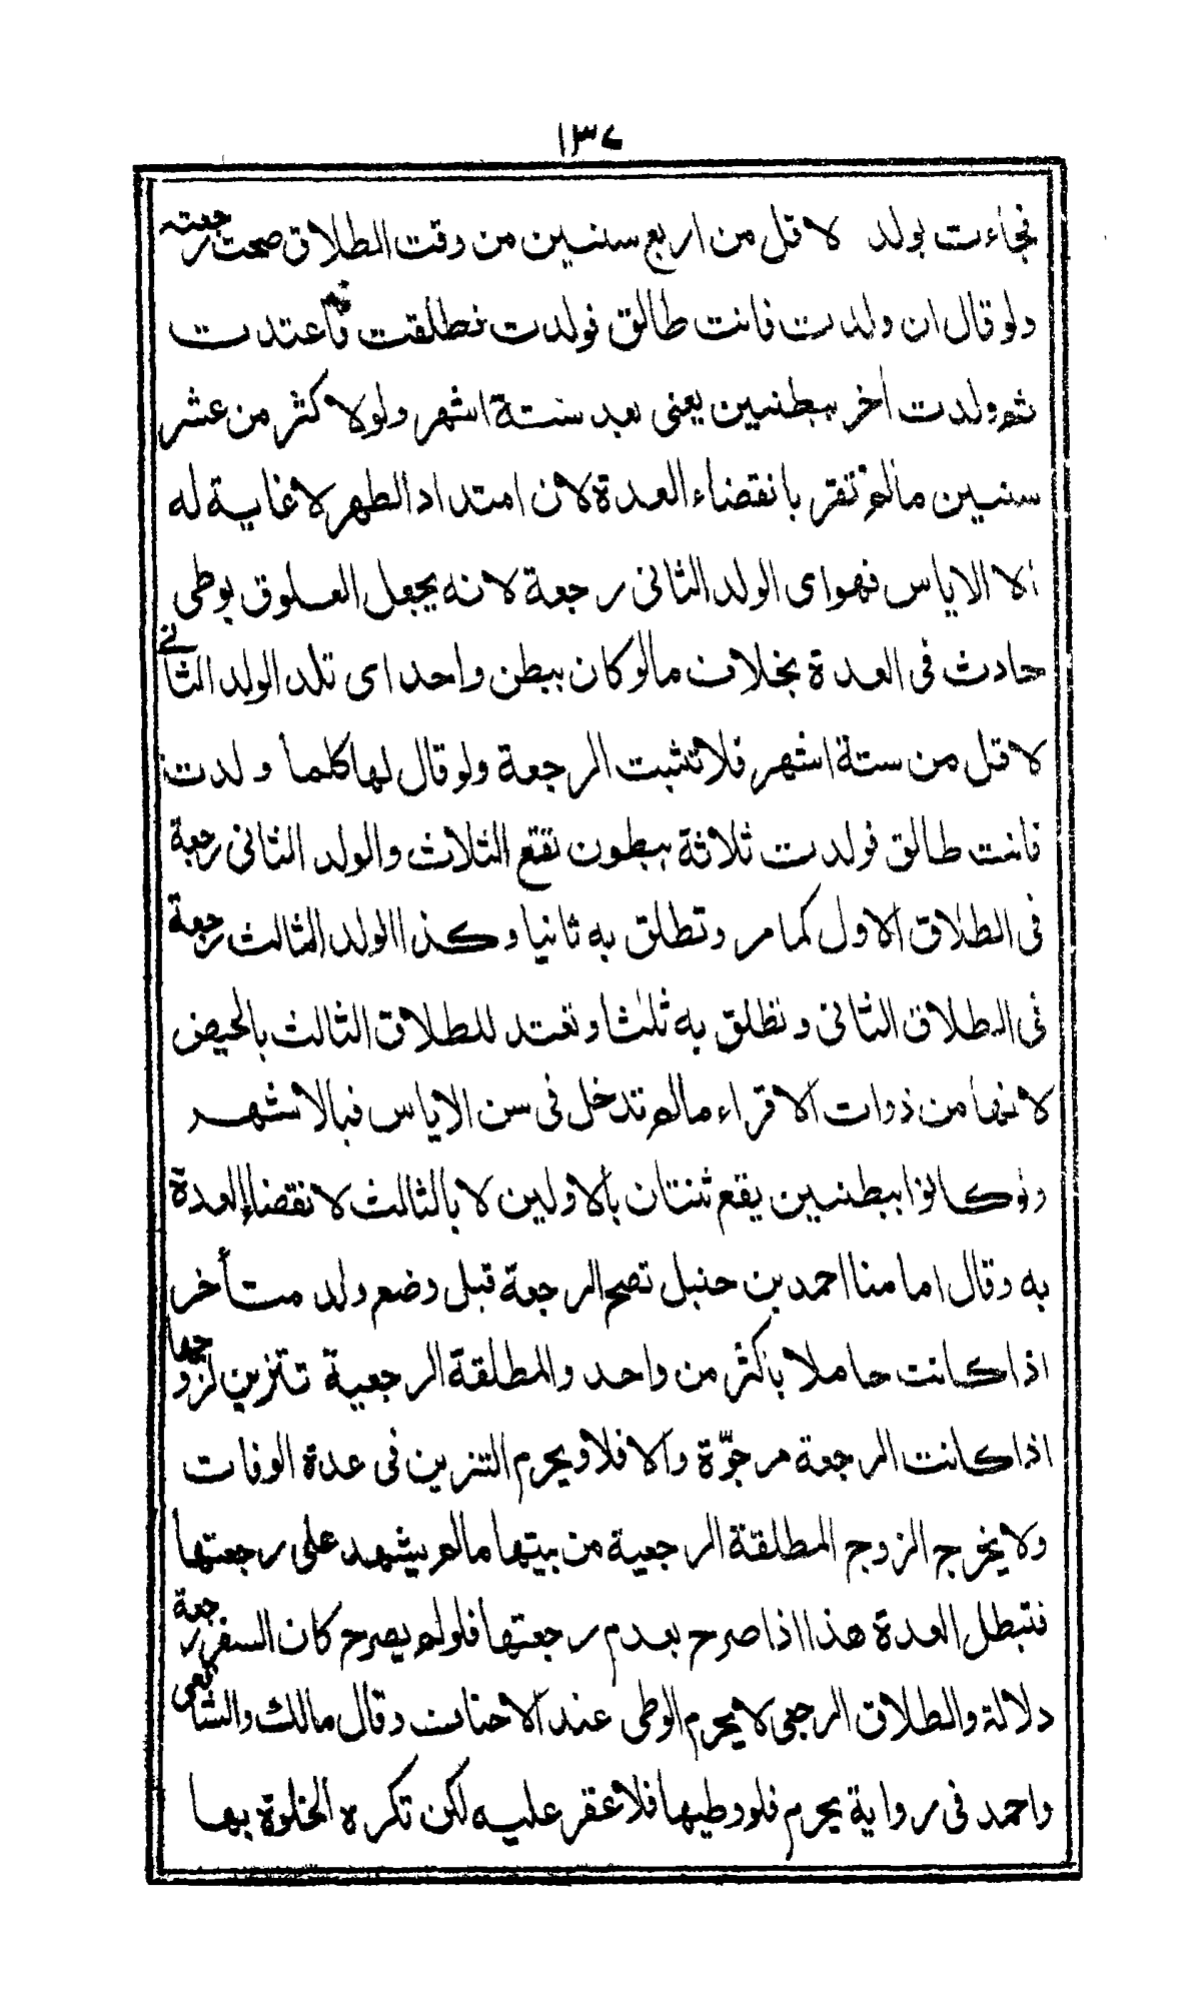 ١٣٧
فجاءت بولد لاقل من اربع سنين من وقت الطلاق صحت رجعته
ولو قال ان ولدت فانت طالق فولدت فطلقت فاعتدت
ثم ولدت اخر ببطنين يعنى بعد ستة اشهر ولو لاكثر من عشر
سنين مالم تقر بانقضاء العدة لان امتداد الطهر لا غاية له
الا الاياس فهو اى الولد الثانى رجعة لانه يجعل العلوق بوطى
حادث فى العدة بخلاف مالو كان ببطن واحد اى تلد الولد الثانى
لاقل من ستة اشهر فلا تثبت الرجعة ولو قال لها كلما ولدت
فانت طالق فولدت ثلاثة ببطون تقع الثلاث والولد الثانى رجعة
فى الطلاق الاول كما مر وتطلق به ثانيا وكذا الولد الثالث رجعة
فى الطلاق الثانى وتطلق به ثلثا وتعتد للطلاق الثالث بالحيض
لانها من ذوات الاقراء مالم تدخل فى سن الاياس فبالاشهر
ولو كانوا ببطنين يقع ثنتان بالاولين لا بالثالث لانقضاء العدة
به وقال امامنا احمد بن حنبل تصح الرجعة قبل وضع ولد متأخر
اذا كانت حاملا باكثر من واحد والمطلقة الرجعية تتزين لزوجها
اذا كانت الرجعة مرجوّة والا فلا ويحرم التزين فى عدة الوفات
ولا يخرج الزوج المطلقة الرجعية من بيتها مالم يشهد على رجعتها
فتبطل العدة هذا اذا صرح بعدم رجعتها فلو لم يصرح كان السفر رجعة
دلالة والطلاق الرجعى لا يحرم الوطى عند الاحناف وقال مالك والشافعى
واحمد فى رواية يحرم فلو وطيها فلا عقر عليه لكن تكره الخلوة بها